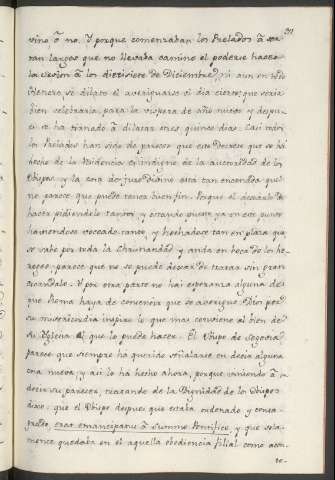 vino, ò no. Y porque comenzaban los Prelados à
ran largos que no llevaba camino el poderse hacer
la sesion à los diez y siete de Diciembre, ni aun en todo
Henero, se dilató el averiguarse el dia cierto, que seria
bien celebrarla, para la vispera de año nuevo, y despu-
es se ha tornado à dilatar otros quince dias. Casi todos
los Prelados han sido de parecer que este Decreto que se ha
hecho de la Residencia es indigno de la autoridad de los
Obispos, y la cosa de jure divino está tan enconada que
no parece que puede tener buen fin. Porque el dexarlo de
hacer pidiendolo tantos, y estando puesta ya en este punto
haviendose voceado tanto, y hechadose tan en plaza que
se sabe por toda la Christiandad, y anda en boca de los he-
reges parece que no se puede dexar de tratar sin gran
escandalo. Y por otra parte no hai esperanza alguna de
que Roma haya de consentir que se averigue. Dios por
su misericordia inspire lo que mas conviene al bien de
su Yglesia à el que lo puede hacer. El Obispo de Segovia
parece que siempre ha querido señalarse en decir alguna
cosa nueva, y asi lo ha hecho ahora, porque viniendo à
decir su parecer, tratando de la Dignidad de los Obispos
dixo, que el Obispo despues que estaba ordenado y consa-
grado, erat emancipatus à Summo Pontifice, y que sola-
mente quedaba en el aquella obediencia filial como acon-
te-